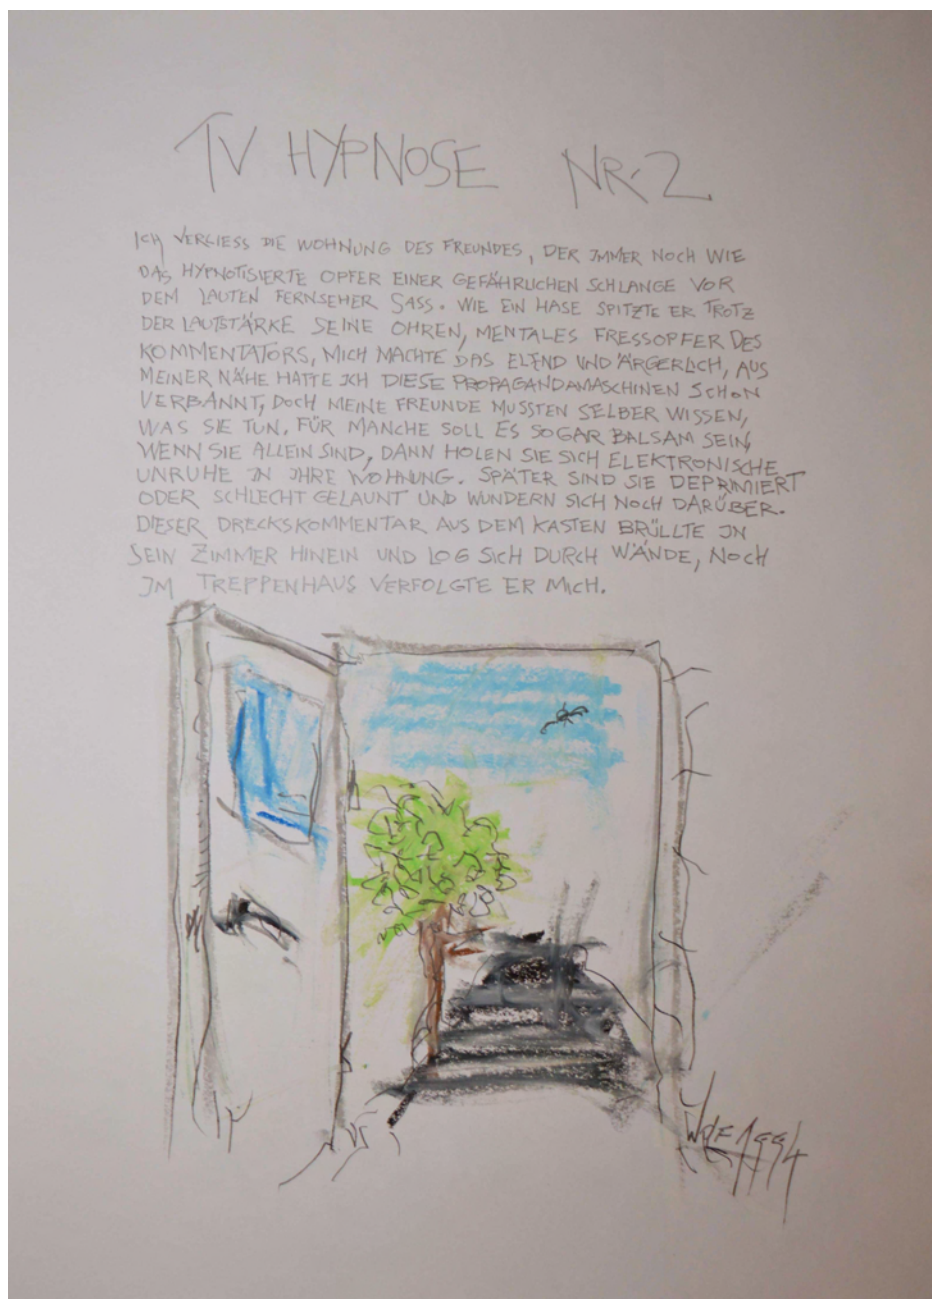 TV HYPNOSE NR. 2
ICH VERLIESS DIE WOHNUNG DES FREUNDES, DER IMMER NOCH WIE
DAS HYPNOTISIERTE OPFER EINER GEFÄHRLICHEN SCHLANGE VOR
DEM LAUTEN FERNSEHER SASS. WIE EIN HASE SPITZTE ER TROTZ
DER LAUTSTÄRKE SEINE OHREN, MENTALES FRESSOPFER DES
KOMMENTATORS, MICH MACHTE DAS ELEND UND ÄRGERLICH, AUS
MEINER NÄHE HATTE ICH DIESE PROPAGANDAMASCHINEN SCHON
VERBANNT, DOCH MEINE FREUNDE MUSSTEN SELBER WISSEN,
WAS SIE TUN. FÜR MANCHE SOLL ES SOGAR BALSAM SEIN,
WENN SIE ALLEIN SIND, DANN HOLEN SIE SICH ELEKTRONISCHE
UNRUHE IN IHRE WOHNUNG. SPÄTER SIND SIE DEPRIMIERT
ODER SCHLECHT GELAUNT UND WUNDERN SICH NOCH DARÜBER.
DIESER DRECKSKOMMENTAR AUS DEM KASTEN BRÜLLTE IN
SEIN ZIMMER HINEIN UND LOG SICH DURCH WÄNDE, NOCH
IM TREPPENHAUS VERFOLGTE ER MICH.
1994